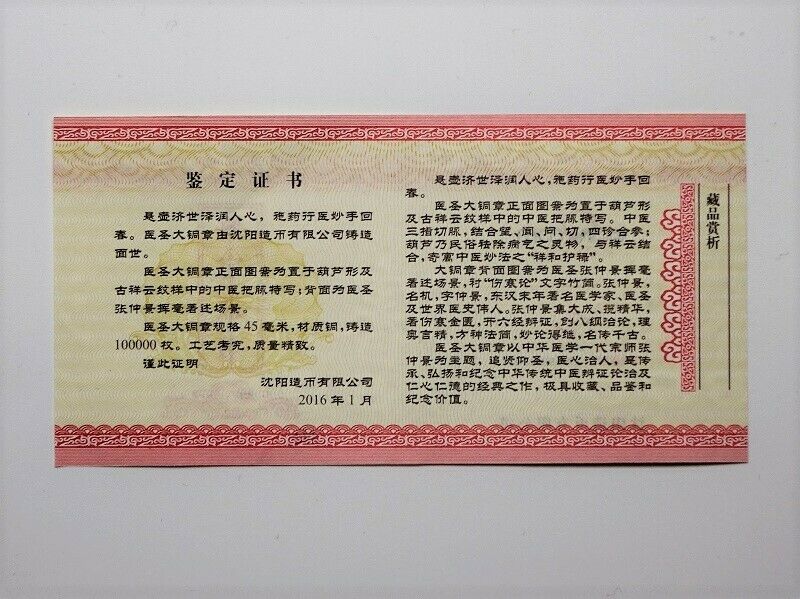 鉴定证书
悬壶济世泽润人心，祂药行医妙手回
春。医圣大铜章由沈阳造币有限公司铸造
面世。
医圣大铜章正面图案为置于葫芦形及
古祥云纹样中的中医把脉特写；背面为医圣
张仲景挥毫著述场景。
医圣大铜章规格 45 毫米，材质铜，铸造
100000 枚。工艺考究，质量精致。
谨此证明
沈阳造币有限公司
2016 年 1 月
悬壶济世泽润人心，祂药行医妙手回
春。
医圣大铜章正面图案为置于葫芦形
及古祥云纹样中的中医把脉特写。中医
三指切脉，结合望、闻、问、切，四诊合参；
葫芦乃民俗祛除病气之灵物，与祥云结
合，寄寓中医妙法之“祥和护稀”。
大铜章背面图案为医圣张仲景挥毫
著述场景，衬“伤寒论”文字竹简。张仲景，
名机，字仲景，东汉末年著名医学家、医圣
及世界医史伟人。张仲景集大成、揽精华，
着伤寒金匮，开六经辨证，创八纲治论，理
奥言精，方神法简，妙论得继，名传千古。
医圣大铜章以中华医学一代宗师张
仲景为主题，追贤仰圣，医心治人，是传
承、弘扬和纪念中华传统中医辨证论治及
仁心仁德的经典之作，极具收藏、品鉴和
纪念价值。
藏品赏析